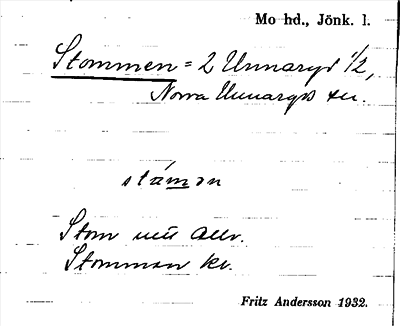 Mo hd., Jönk. l.
Stommen = 2 Unnaryd 1/2,
Norra Unnaryds sn.
stámǝn
Stom
Stommen kv.
Fritz Andersson 1932.